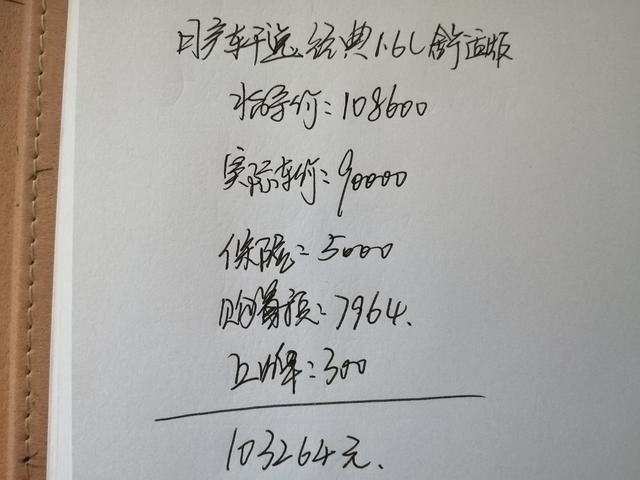 日产轩逸经典1.6L舒适版
指导价:108600
实际车价:90000
保险:5000
购置税:7964.
上牌:300
103264元.